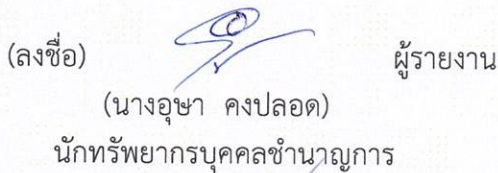 (ลงชื่อ) ผู้รายงาน
(นางอุษา คงปลอด)
นักทรัพยากรบุคคลชำนาญการ